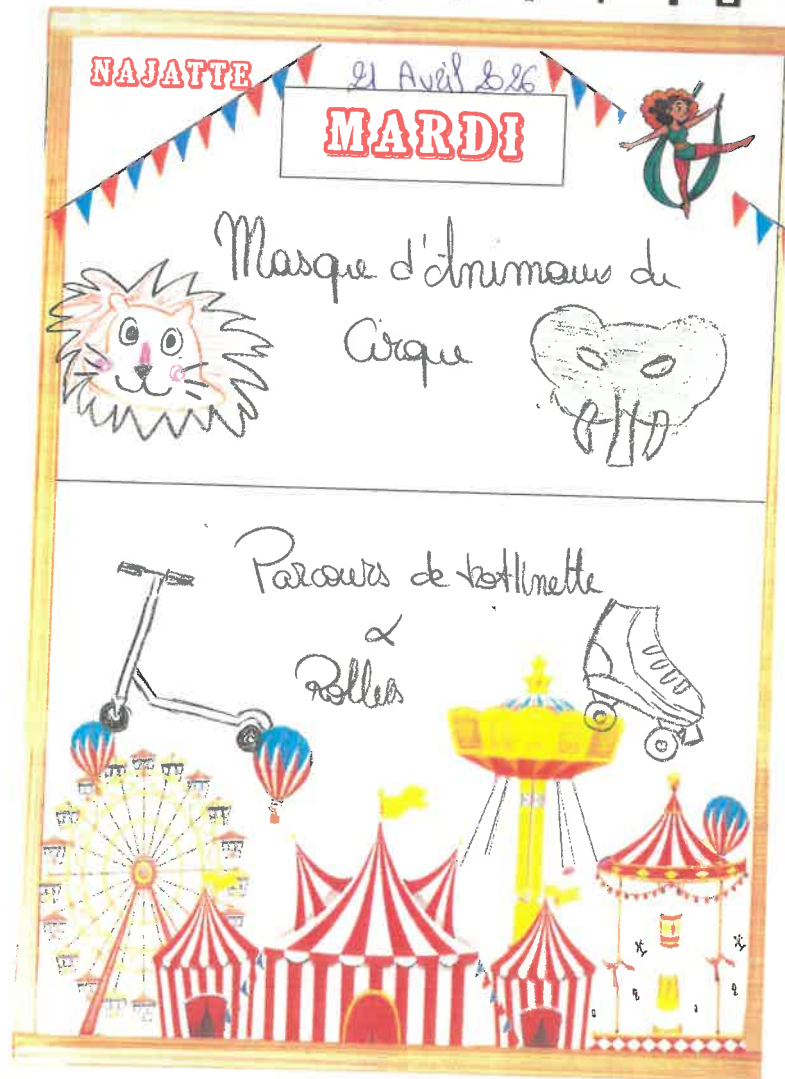 NAJATTE
21 Avril 2026
MARDI
Masque d'Animaux de
Cirque
Parcours de trottinette
&
Rollers